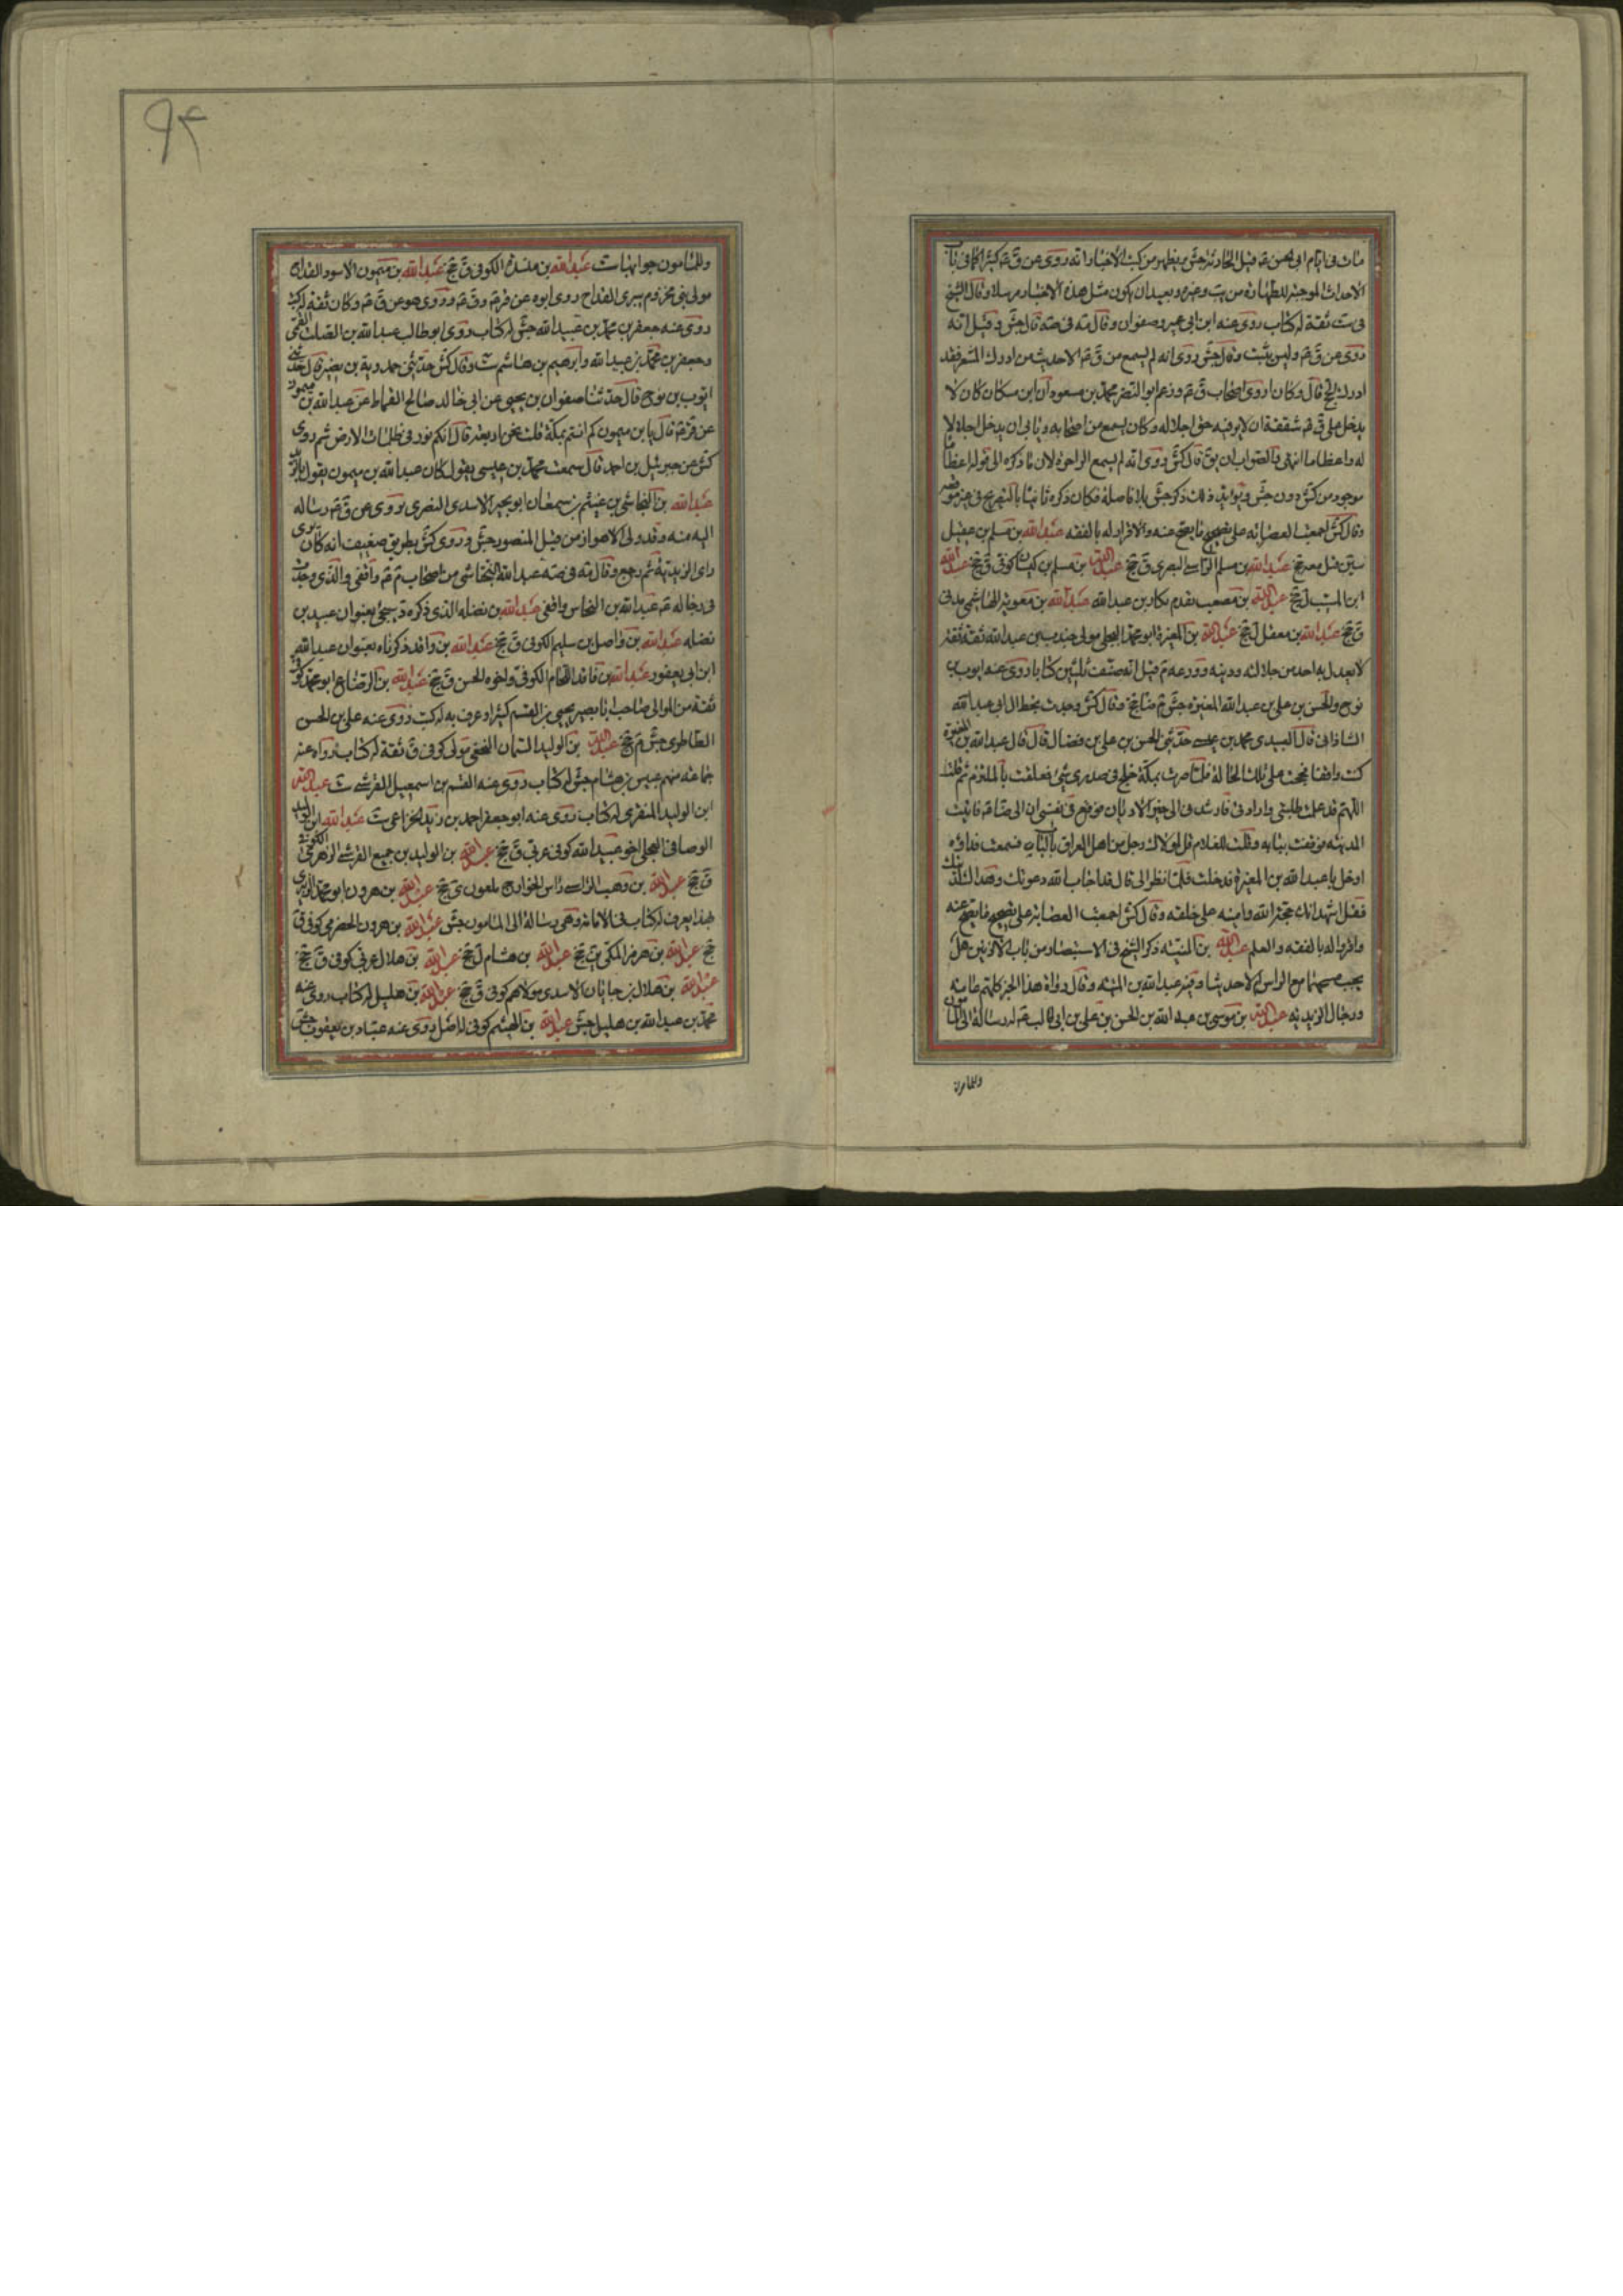 مات في ايام ابي الحسن ع‍ قبل الحادثة جش يظهر من كتب الاخبار انه روى عن ق ع‍ كثيرا كما في باب
الاحداث الموجبة للطهارة من يب وغيره وبعيد ان يكون مثل هذه الاخبار مرسلا وقال الشيخ
في ست ثقة له كتاب روى عنه ابن ابي عمير وصفوان وقال مه في صه قال جش وقيل انه
روى عن ق ع‍ وليس بثبت وقال جش روى انه لم يسمع من ق ع‍ الا حديث من ادرك المشعر فقد
ادرك الحج قال وكان اروى اصحاب ق ع‍ وزعم ابو النضر محمد بن مسعود ان ابن مسكان كان لا
يدخل على ق ع‍ شفقة ان لا يوفيه حق اجلاله وكان يسمع من اصحابه ويابى ان يدخل اجلالا
له واعظاما انتهى والصواب ان يق قال كش روى انه لم يسمع الى اخره لان ما ذكره الى قوله اعظاما
موجود من كش دون جش
وقال كش اجمعت العصابة على تصحيح ما يصح عنه والاقرار له بالفقه عبدالله بن مسلم بن عقيل
بن قتل معه جخ عبدالله بن مسلم البصري ق جخ عبدالله بن مسلم بن كيسان كوفي ق جخ عبدالله
ابن المسيب ل جخ عبدالله بن مصعب تقدم بكار بن عبدالله عبدالله بن معوية الهاشمي مدني
ق جخ عبدالله بن مغفل ل جخ عبدالله بن المغيرة ابو محمد البجلي مولى جندب بن عبدالله ثقة ثقة
لا يعدل به احد من جلالته ودينه وورعه م قيل انه صنف ثلثين كتابا روى عنه ايوب بن
نوح والحسن بن علي بن عبدالله المغيرة جش م ضا جخ وقال كش وجدت بخط ابي عبدالله
الشاذاني قال العبيدي محمد بن عيسى حدثني الحسن بن علي بن فضال قال قال عبدالله بن المغيرة
كنت واقفا فحججت على تلك الحالة فلما صرت بمكة خلج في صدري شيء فتعلقت بالملتزم ثم قلت
اللهم قد علمت طلبتي وارادتي فارشدني الى خير الاديان فوقع في نفسي ان اتي الرضا ع‍ فاتيت
المدينة فوقفت ببابه وقلت للغلام قل لمولاك رجل من اهل العراق بالباب فسمعت نداؤه
ادخل يا عبدالله بن المغيرة فدخلت فلما نظر الي قال قد اجاب الله دعوتك وهداك لدينك
فقلت اشهد انك حجة الله وامينه على خلقه وقال كش اجمعت العصابة على تصحيح ما يصح عنه
واقروا له بالفقه والعلم عبدالله بن المنبه ذكر الشيخ في الاستبصار من باب الاذنين هل
يجب مسحهما مع الراس ام لا حديثا وفيه عبدالله بن المنبه وقال رواة هذا الخبر كلهم عامية
ورجال الزيدية عبدالله بن موسى بن عبدالله بن الحسن بن علي بن ابي طالب ع‍ له رسالة الى المامون
وللمامون
٩٤
وللمامون جوابها ست عبدالله بن الكوفي ق جخ عبدالله بن ميمون الاسود القداح
مولى بني مخزوم يبري القداح روى ابوه عن قر ع‍ و ق ع‍ وروى هو عن ق ع‍ وكان ثقة له كتب
روى عنه جعفر بن محمد بن عبيدالله جش له كتاب روى ابو طالب عبدالله بن الصلت القمي
وجعفر بن محمد بن عبيدالله وابرهيم بن هاشم ست وقال كش حدثني حمدوية بن نصير قال حدثني
ايوب بن نوح قال حدثنا صفوان بن يحيى عن ابي خالد صالح القماط عن عبدالله بن ميمون
عن قر ع‍ قال يا بن ميمون كم انتم بمكة قلت نحن اربعة قال انكم نور في ظلمات الارض ثم روى
كش عن جبرئيل بن احمد قال سمعت محمد بن عيسى يقول كان عبدالله بن ميمون يقول بالتزيد
عبدالله بن النجاشي بن عثيم بن سمعان ابو بجير الاسدي النصري يروي عن ق ع‍ رسالة
اليه منه وقد ولى الاهواز من قبل المنصور جش وروى كش بطريق ضعيف انه كان يرى
راى الزيدية ثم رجع وقال مه في صه عبدالله النجاشي من اصحاب م ع‍ واقفي والذي وجدت
في رجاله ع‍ عبدالله بن النخاس واقفي عبدالله بن نضله الذي ذكره د يجيء بعنوان عبيد بن
نضله عبدالله بن واصل بن سليم الكوفي ق جخ عبدالله بن واقد ذكرناه بعنوان عبدالله
ابن ابي يعفور عبدالله بن واقد اللحام الكوفي واخوه الحسن ق جخ عبدالله بن الوضاح ابو محمد كوفي
ثقة من الموالي صاحب ابا بصير يحيى بن القسم كثيرا وعرف به له كتب روى عنه علي بن الحسن
الطاطري جش م جخ عبدالله بن الوليد السمان النخعي مولى كوفي ق ثقة له كتاب رواه عنه
جماعة منهم عبيس بن هشام جش له كتاب روى عنه القسم بن اسمعيل القرشي ست عبدالله
ابن الوليد المنقري له كتاب روى عنه ابو جعفر احمد بن زيد الخزاعي ست عبدالله ابن الوليد
الوصافي العجلي اخو عبيدالله كوفي عربي ق جخ عبدالله بن الوليد بن جميع القرشي الزهري الكوفي
ق جخ عبدالله بن وهب الراسبي راس الخوارج ملعون ي جخ عبدالله بن هرون ابو محمد الزبيري
بهذا يعرف له كتاب في الامامة وهي رسالة الى المامون جش عبدالله بن هرون الحضرمي كوفي ق
جخ عبدالله بن هرمز المكي ين جخ عبدالله بن هشام ل جخ عبدالله بن هلال عربي كوفي ق جخ
عبدالله بن هلال بن جابان الاسدي مولاهم كوفي ق جخ عبدالله بن هليل له كتاب روى عنه
محمد بن عبدالله بن هليل جش عبدالله بن الهيثم كوفي له اصل روى عنه عباد بن يعقوب جش